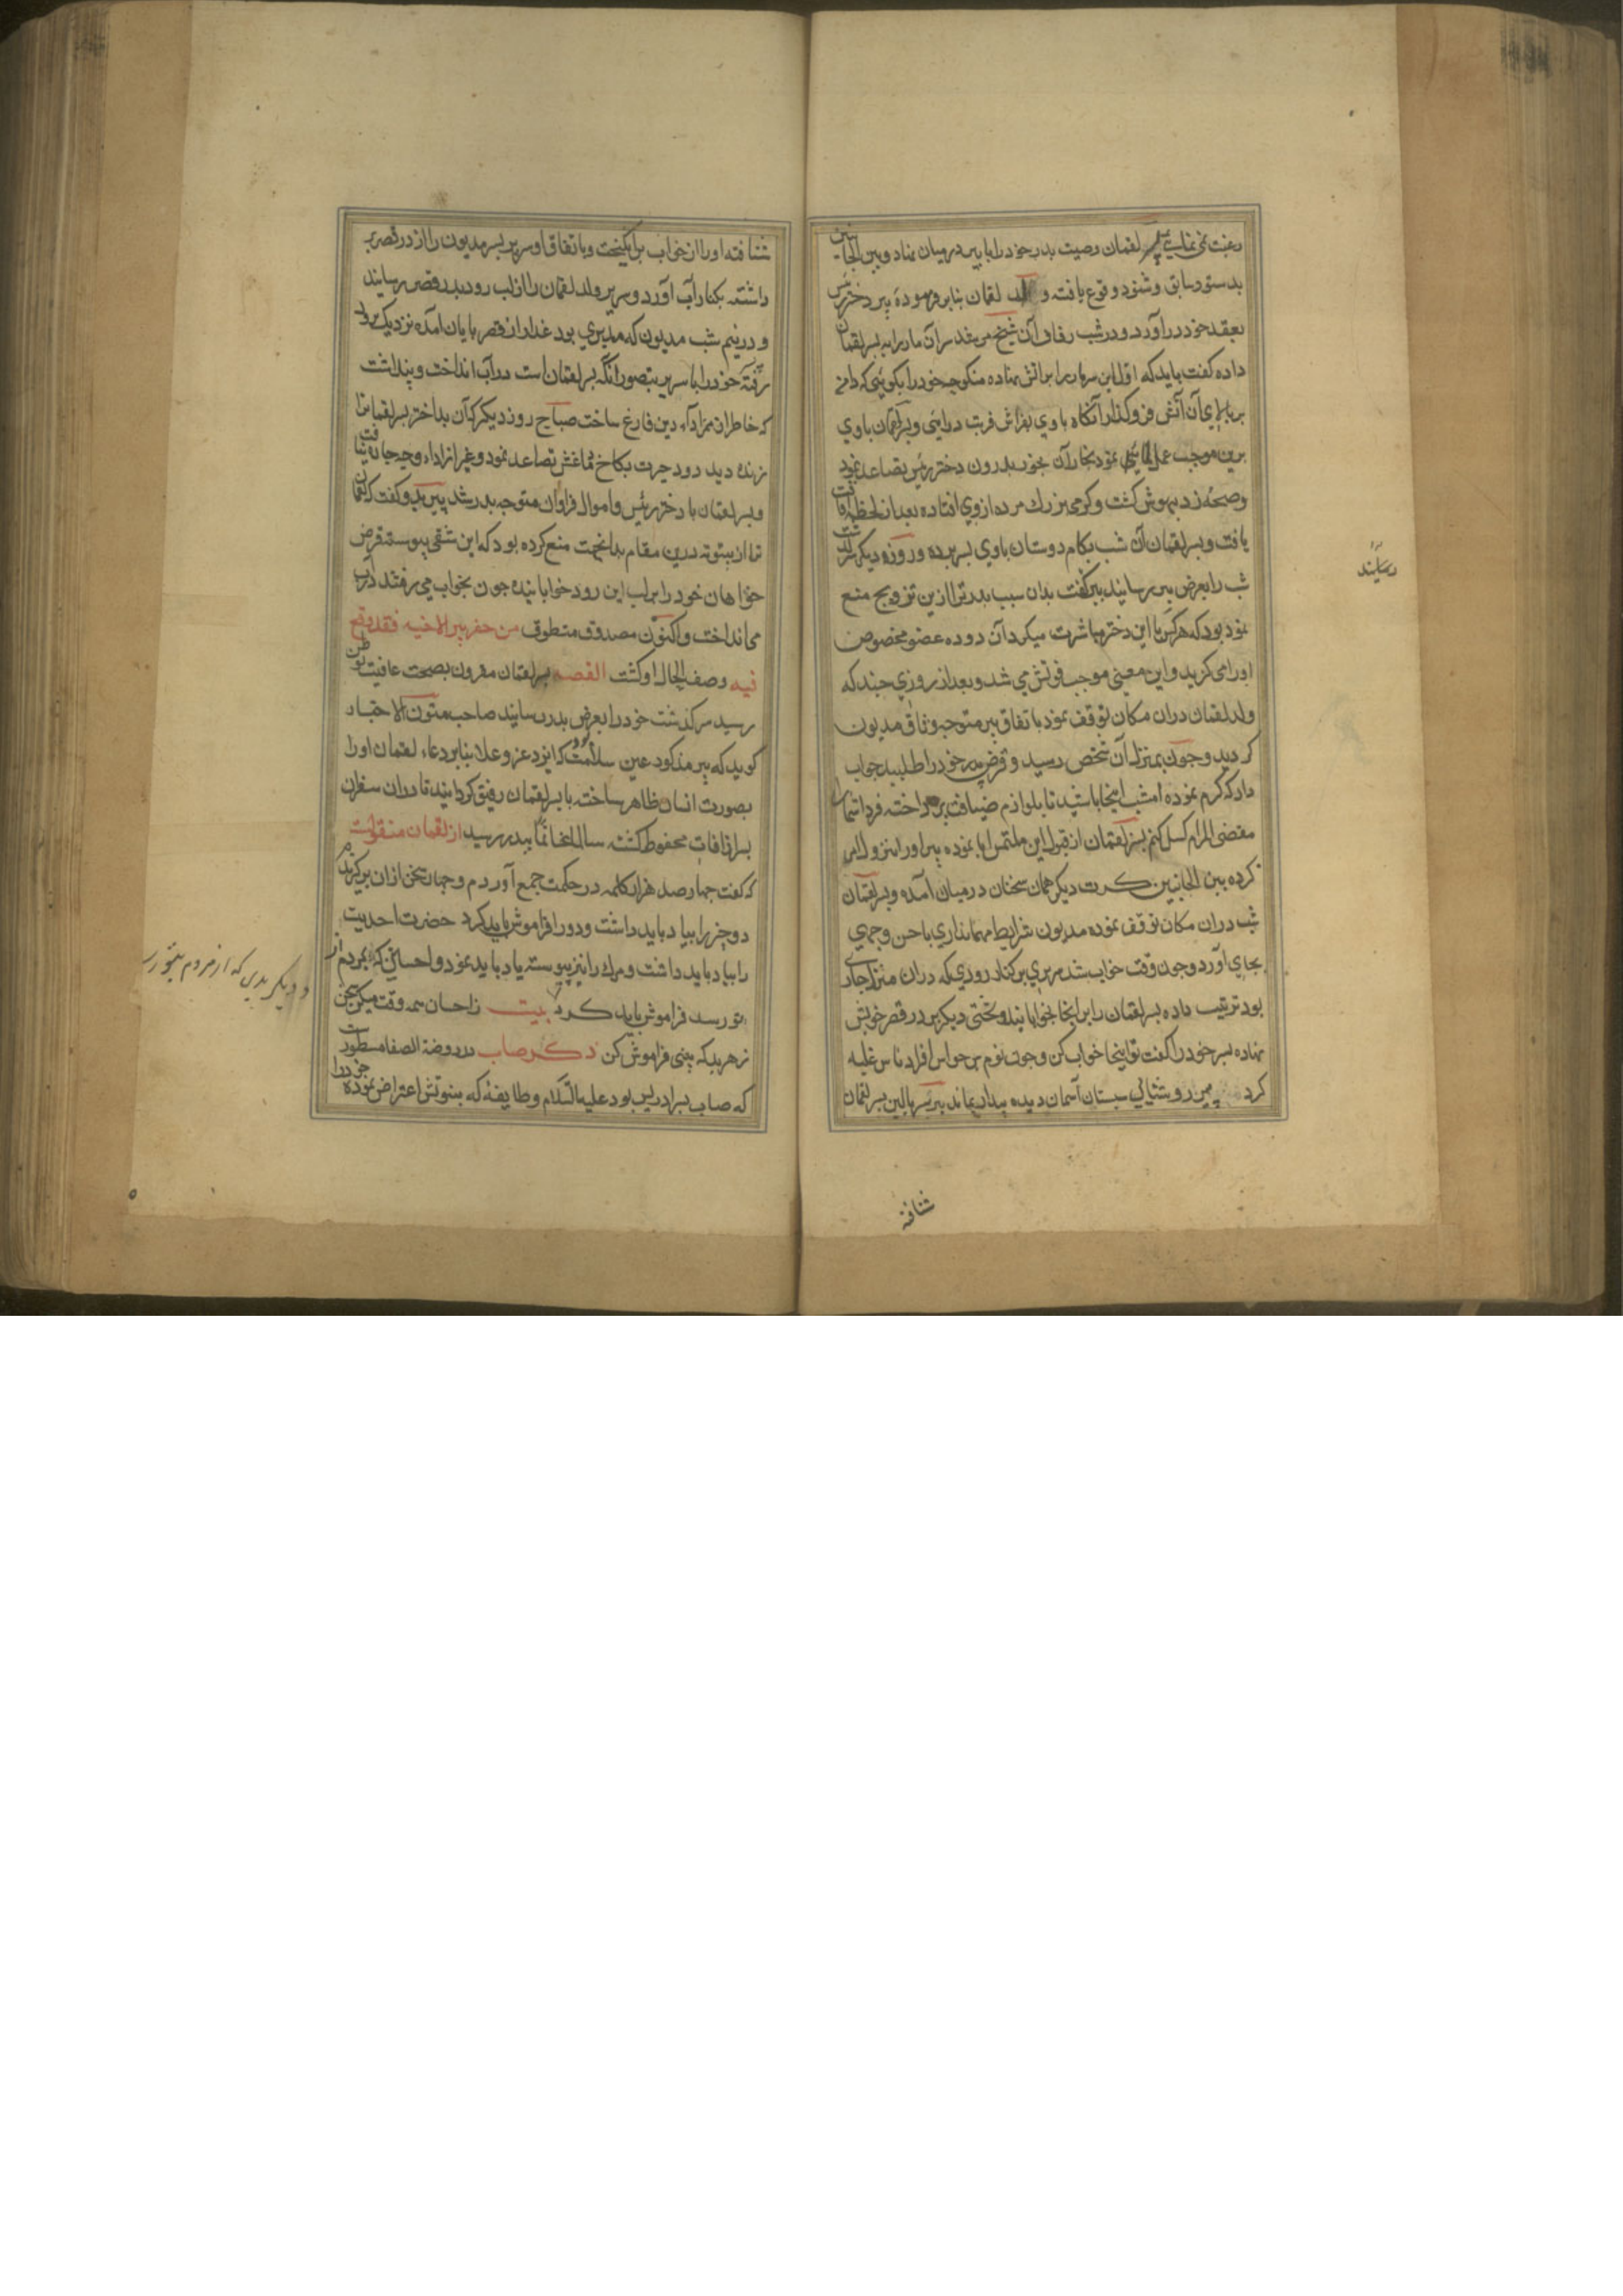 رغبت نمی نمایی پسر لقمان وصیت پدر خود را با پیر در میان نهاد و بین الجانبین
بدستور سابق گفت و شنود وقوع یافته ولد لقمان بنابر فرموده پیر دختر رئیس
بعقد خود درآورد و در شب زفاف آن شیخ مرشد سر آن مار را به پسر لقمان
داده گفت باید که اول این سر مار را بر آتش نهاده منکوحه خود را بگویی که دامن
بر بالای آن آتش فرو گذارد آنگاه با وی بفراش قربت درآیی و پسر لقمان با وی
برین موجب عمل نمود بخار آن بخور بدرون دختر رئیس تصاعد نمود
وصیحه زد بیهوش گشت و کرمی بزرک مرده از وی افتاده بعد از لحظه افاقت
یافت و پسر لقمان آن شب بکام دوستان با وی بسر برده و روز دیگر سرگذشت
شب را بعرض پیر رسانید پیر گفت بدان سبب پدر ترا ازین تزویج منع
نمود بود که هر کس با این دختر مباشرت میکرد آن دوده عضو مخصوص
او را می گزید و این معنی موجب فوتش می شد و بعد از روزی چند که
ولد لقمان دران مکان توقف نمود باتفاق پیر متوجه وثاق مدیون
گردید و چون بمنزل آن شخص رسید و قرض پدر خود را طلبید جواب
داد که کرم نموده امشب اینجا باشید تا بلوازم ضیافت پرداخته فردا شما را
مقضی المرام گسیل کنم پسر لقمان از قبول این ملتمس ابا نموده پیر او را بنزول امر
کرده بین الجانبین کرت دیگر همان سخنان در میان آمده و پسر لقمان
شب دران مکان توقف نموده مدیون شرایط مهمانداری باحسن وجهی
بجای آورد و چون وقت خواب شد سریری بر کنار رودی که دران منزل جاری
بود ترتیب داده پسر لقمان را برانجا بخوابانید و تختی دیگر بر در قصر خویش
نهاده پسر خود را گفت تو اینجا خواب کن و چون نوم بر حواس افراد ناس غلبه
کرد روشنایی سبستان آسمان دیده بیدار نماند پیر بر سر بالین پسر لقمان
شتافته
رسانید
شتافته او را از خواب برانگیخت و باتفاق او سریر پسر مدیون را از در قصر بر
داشته بکنار آب آورد و سریر ولد لقمان را از لب رود بدر قصر رسانید
و در نیم شب مدیون که مدبری بود غدار از قصر بپایان آمده نزدیک برود
رفته خود را با سریر بتصور انکه پسر لقمان است در آب انداخت و پنداشت
که خاطر ازان ادآء دین فارغ ساخت صباح روز دیگر که آن بداختر پسر لقمان را
زنده دید دود حیرت بکاخ دماغش تصاعد نمود و غیر از اداء وجه چاره نیافت
و پسر لقمان با دختر رئیس و اموال فراوان متوجه پدر شد پیر بدو گفت که لقمان
ترا از بیتوته درین مقام بدانجهت منع کرده بود که این شقی پیوسته قرض
خواهان خود را بر لب این رود خوابانیده چون بخواب می رفتند در آب
می انداخت و اکنون مصدوق منطوق من حفر بیر الاخیه فقد وقع
فیه وصف الحال او گشت القصه پسر لقمان مقرون بصحت و عافیت بوطن
رسید سرگذشت خود را بعرض پدر رسانید صاحب متون الاخبار
گوید که پیر مذکود عین سلامت بود که ایزد عز و علا بنابر دعاء لقمان او را
بصورت انسان ظاهر ساخته با پسر لقمان رفیق گردانید تا دران سفر ازان
بسر از آفات محفوظ گشته سالما غانما بپدر رسید از لقمان منقولست
که گفت چهار صد هزار کلمه در حکمت جمع آوردم و چهار سخن ازان برگزیدم
دو چیز را بیاد باید داشت و دو را فراموش باید کرد حضرت احدیت
را بیاد باید داشت و مرک را نیز پیوسته یاد باید نمود و احسانی که بمردم از
تو رسد فراموش باید کرد بیت ز احسان همه وقت میکن سخن
ز هر بد که بینی فراموش کن ذکر صاب در روضة الصفا مسطورست
که صاب پسر ادریس بود علیه السلام و طایفه که بنبوتش اعتراض نموده خود را
و دیگر بدی که از مردم بتو رسد